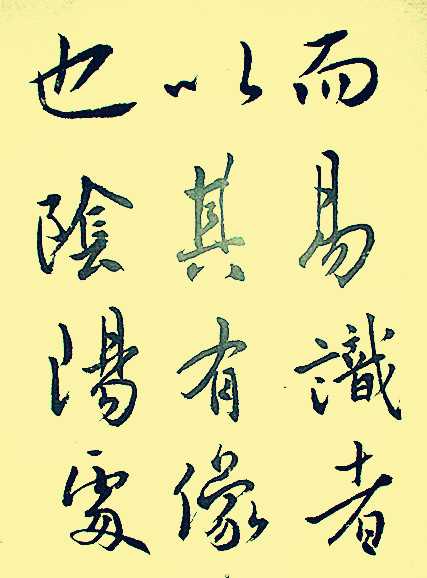 而易識者
以其有像
也陰陽處